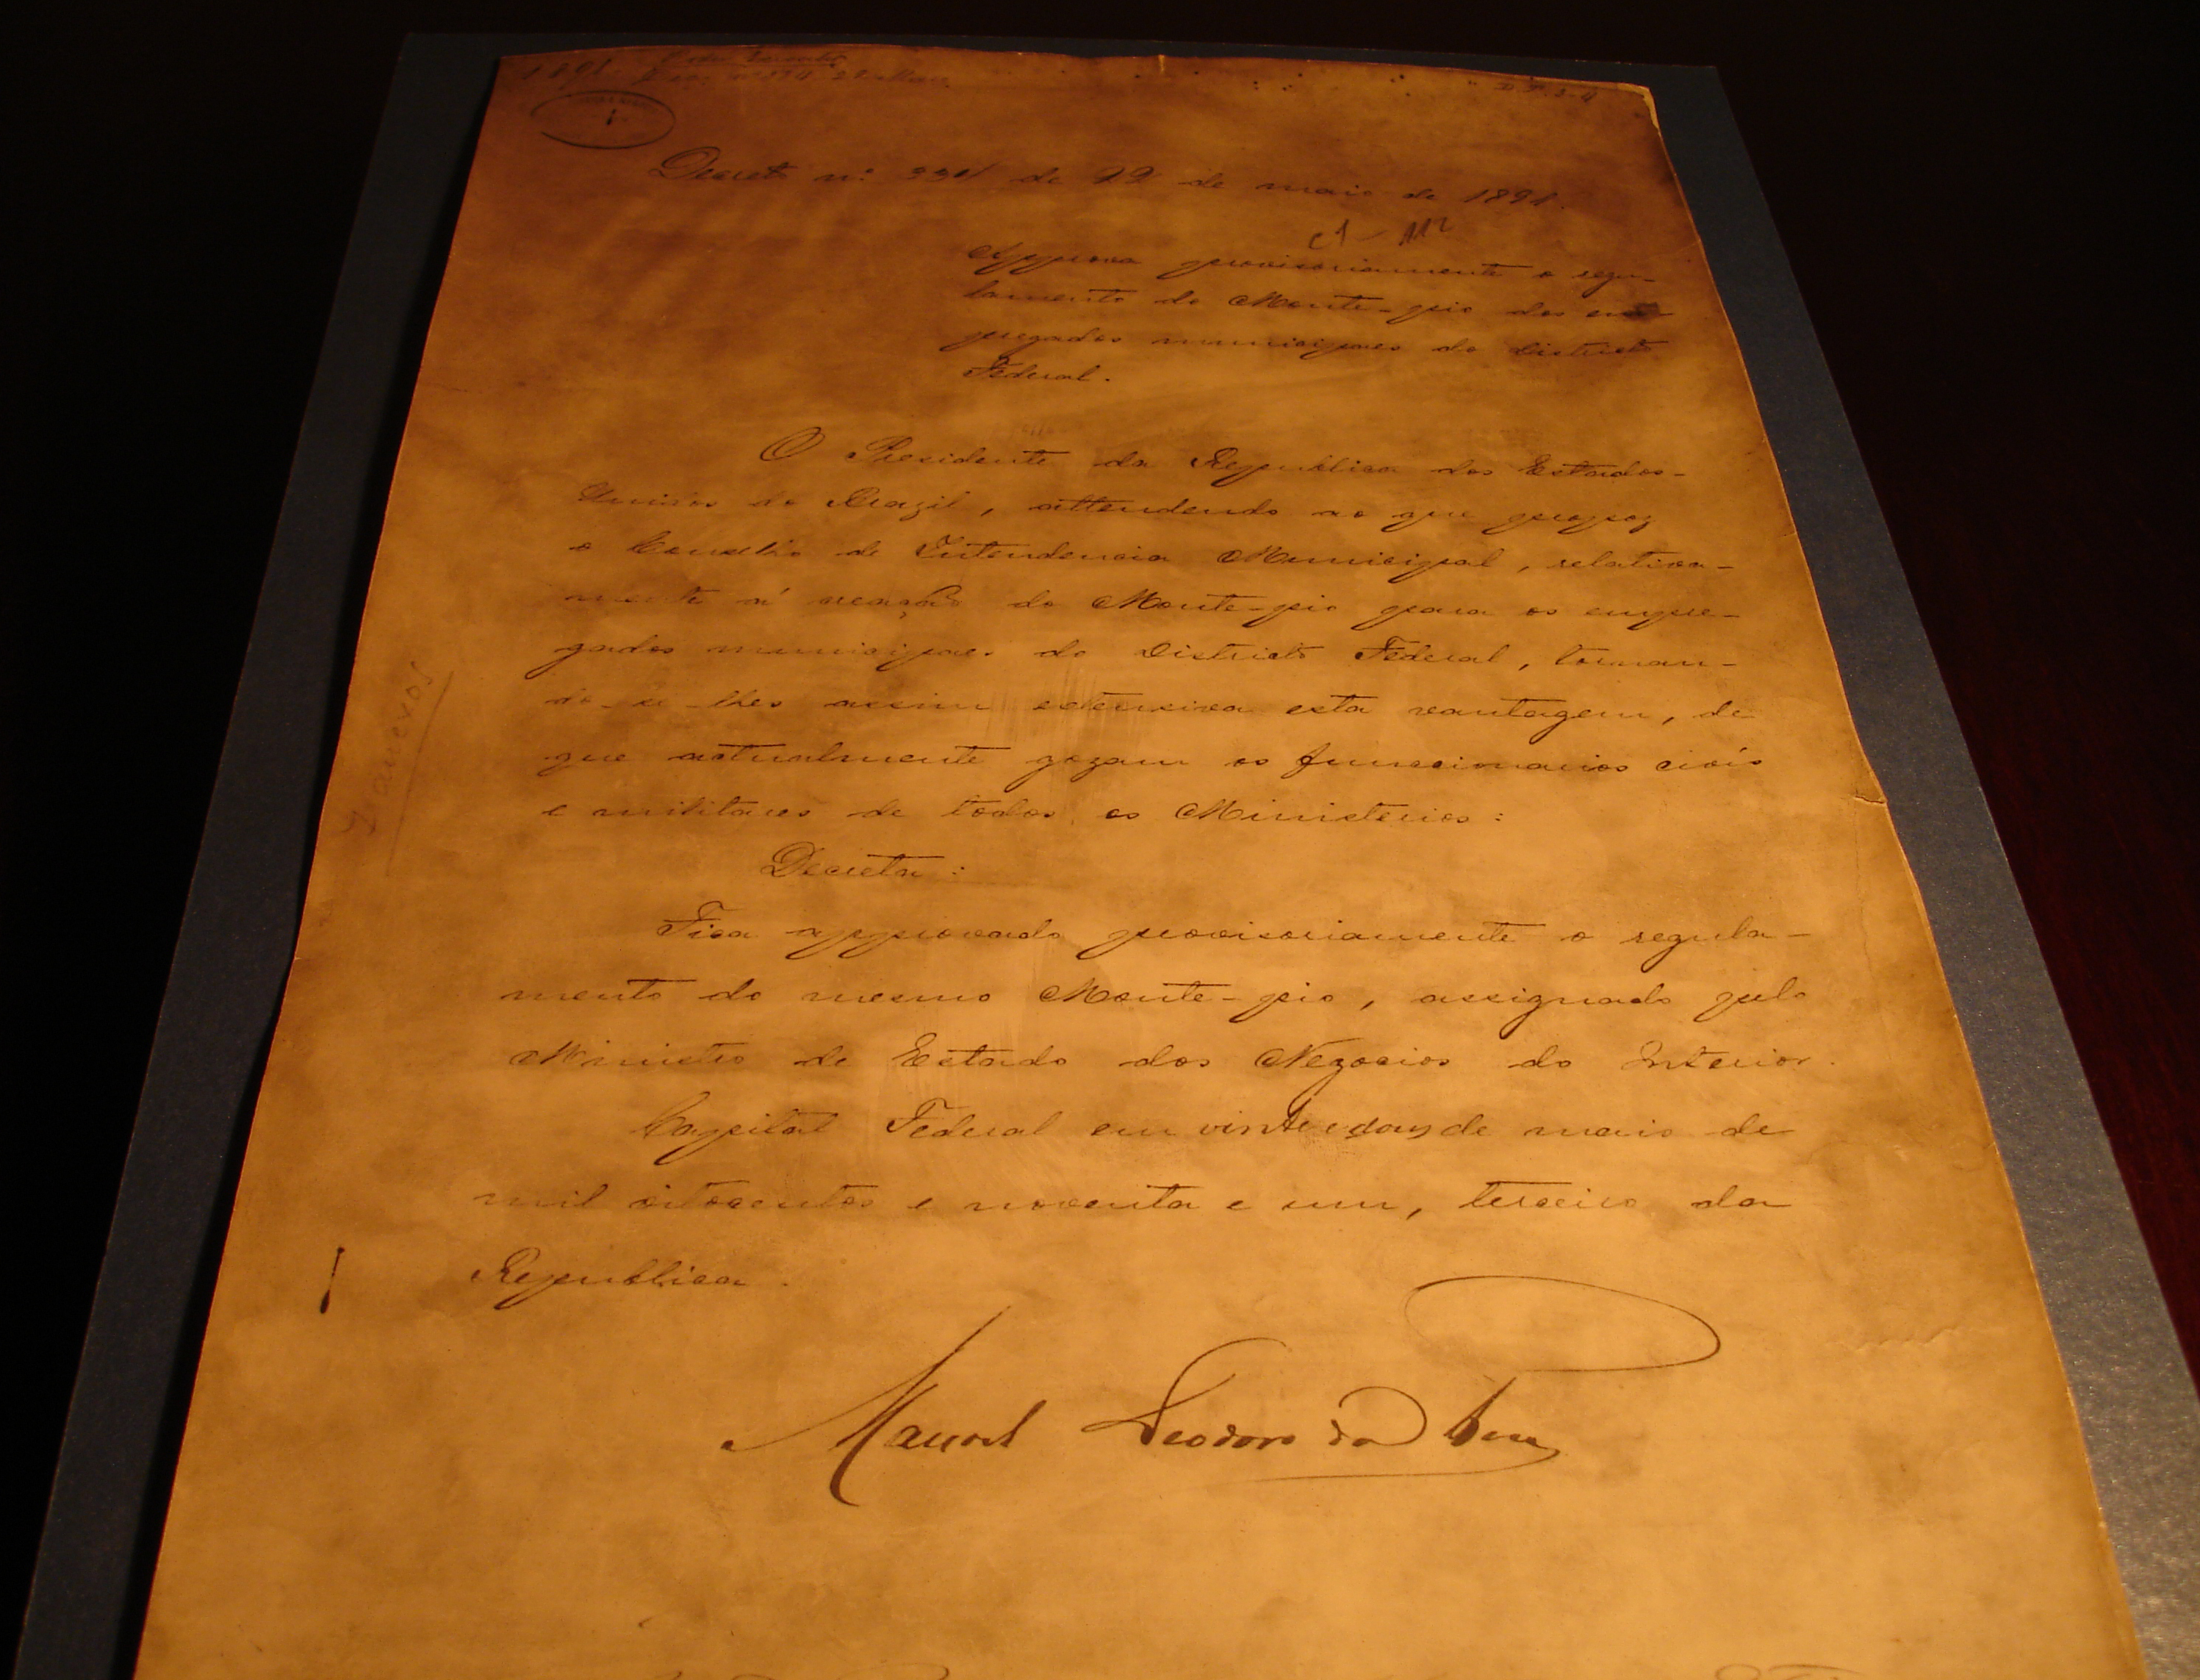 1891
Decreto nº 334 de 22 de maio de 1891.
Approva provisoriamente o regu-
lamento do Monte-pio dos em-
pregados municipaes do Districto
Federal.
O Presidente da Republica dos Estados-
Unidos do Brazil, attendendo ao que propoz
o Conselho de Intendencia Municipal, relativa-
mente á creação do Monte-pio para os empre-
gados municipaes do Districto Federal, tornan-
do-se-lhes assim extensiva esta vantagem, de
que actualmente gozam os funccionarios civís
e militares de todos os Ministerios:
Decreta:
Fica approvado provisoriamente o regula-
mento do mesmo Monte-pio, assignado pelo
Ministro de Estado dos Negocios do Interior.
Capital Federal em vinte e dous de maio de
mil oitocentos e noventa e um, terceiro da
Republica.
Manoel Deodoro da Fonseca
2 anexos